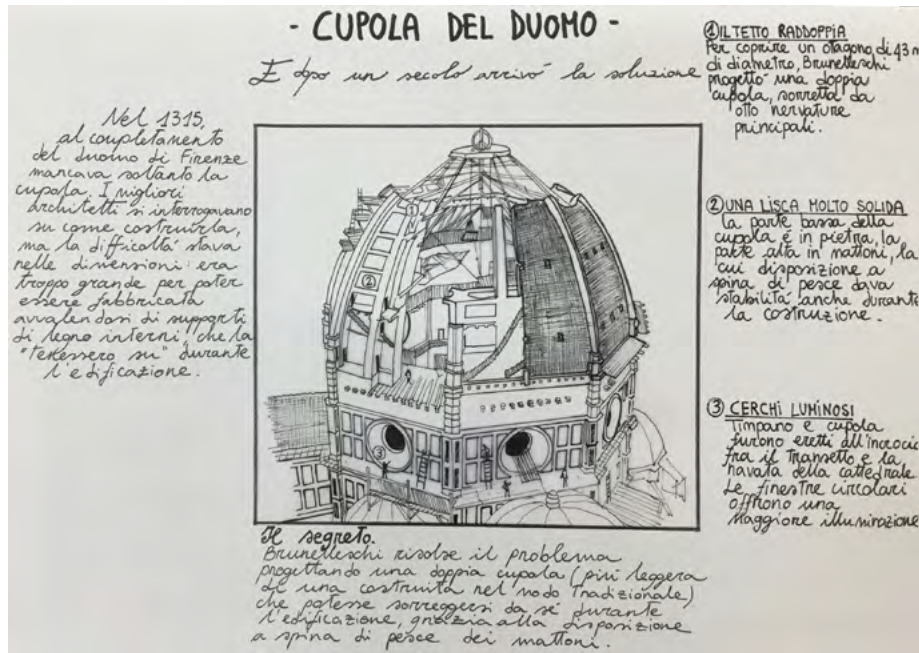 - CUPOLA DEL DUOMO -
E dopo un secolo arrivò la soluzione
Nel 1315,
al completamento
del duomo di Firenze
mancava soltanto la
cupola. I migliori
architetti si interrogavano
su come costruirla,
ma la difficoltà stava
nelle dimensioni: era
troppo grande per poter
essere fabbricata
avvalendosi di supporti
di legno interni, che la
"tenessero su" durante
l'edificazione.
1
2
3
Il segreto.
Brunelleschi risolse il problema
progettando una doppia cupola (più leggera
di una costruita nel modo tradizionale)
che potesse sorreggersi da sé durante
l'edificazione, grazia alla disposizione
a spina di pesce dei mattoni.
① IL TETTO RADDOPPIA
Per coprire un otagono, di 43 m
di diametro, Brunelleschi
progettò una doppia
cupola, sorretta da
otto nervature
principali.
② UNA LISCA MOLTO SOLIDA
la parte bassa della
cupola è in pietra, la
parte alta in mattoni, la
cui disposizione a
spina di pesce dava
stabilità anche durante
la costruzione.
③ CERCHI LUMINOSI
Timpano e cupola
furono eretti all'incrocio
fra il transetto e la
navata della cattedrale
Le finestre circolari
offrono una
maggiore illuminazione